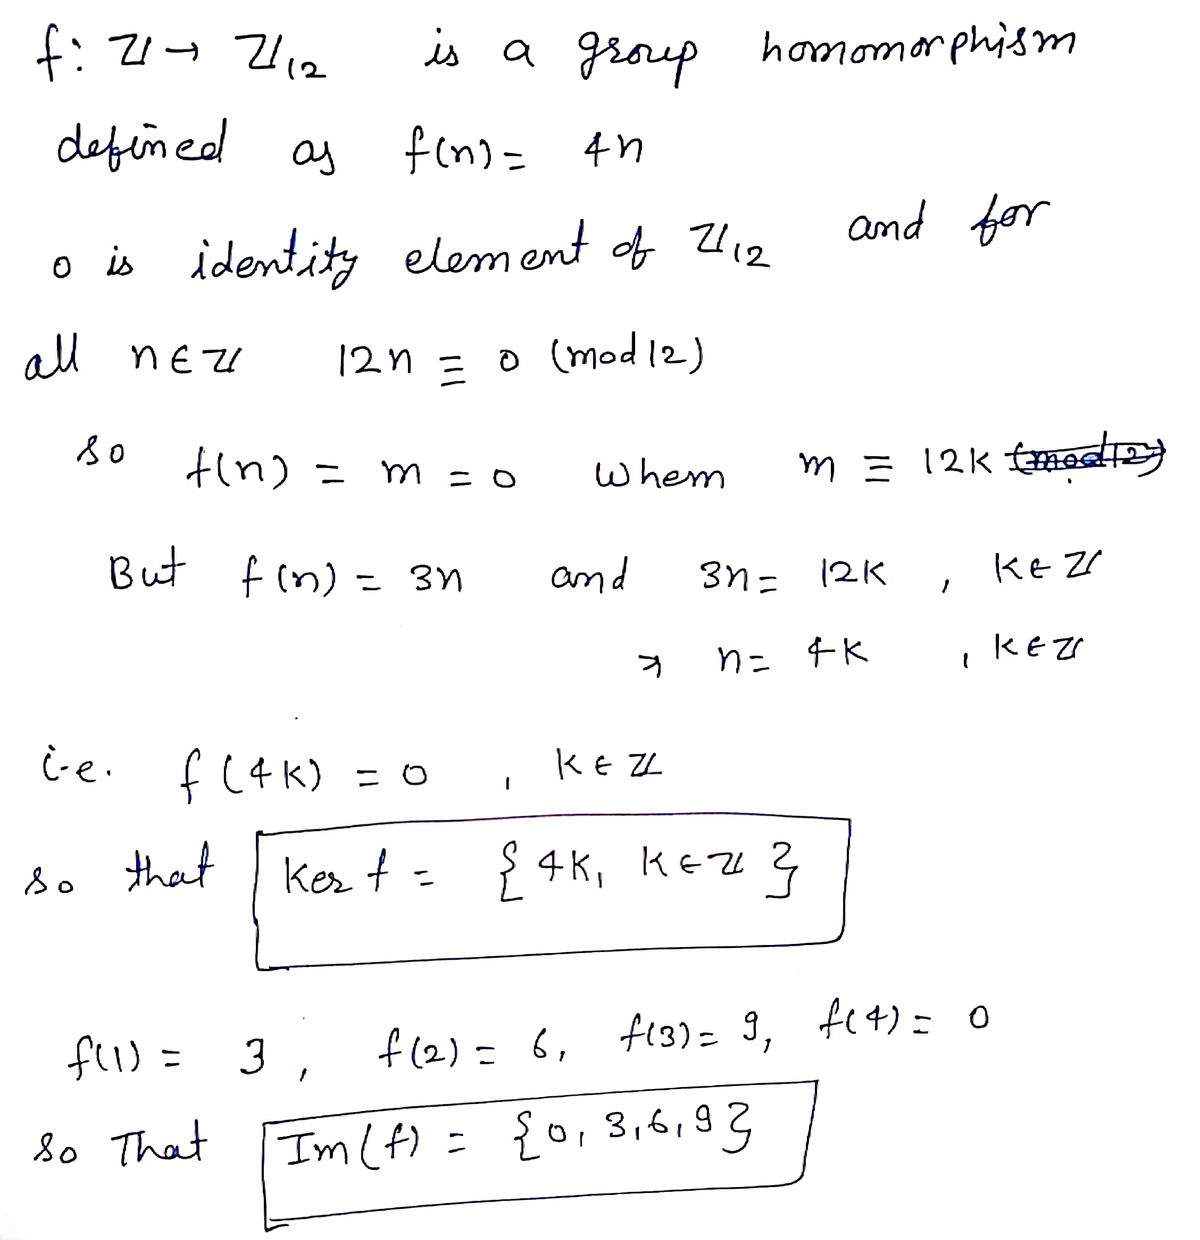 f: ℤ → ℤ₁₂ is a group homomorphism
defined as f(n) = 4n
0 is identity element of ℤ₁₂ and for
all n ∈ ℤ 12n ≡ 0 (mod 12)
so f(n) = m = 0 when m ≡ 12K (mod 12)
But f(n) = 3n and 3n = 12K , K ∈ ℤ
⇒ n = 4K , K ∈ ℤ
i.e. f(4K) = 0 , K ∈ ℤ
so that Ker f = { 4K, K ∈ ℤ }
f(1) = 3 , f(2) = 6, f(3) = 9, f(4) = 0
so That Im(f) = {0, 3, 6, 9}